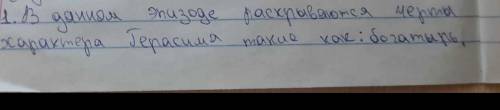 1. В данном эпизоде раскрываются черты
характера Герасима такие как: богатырь,